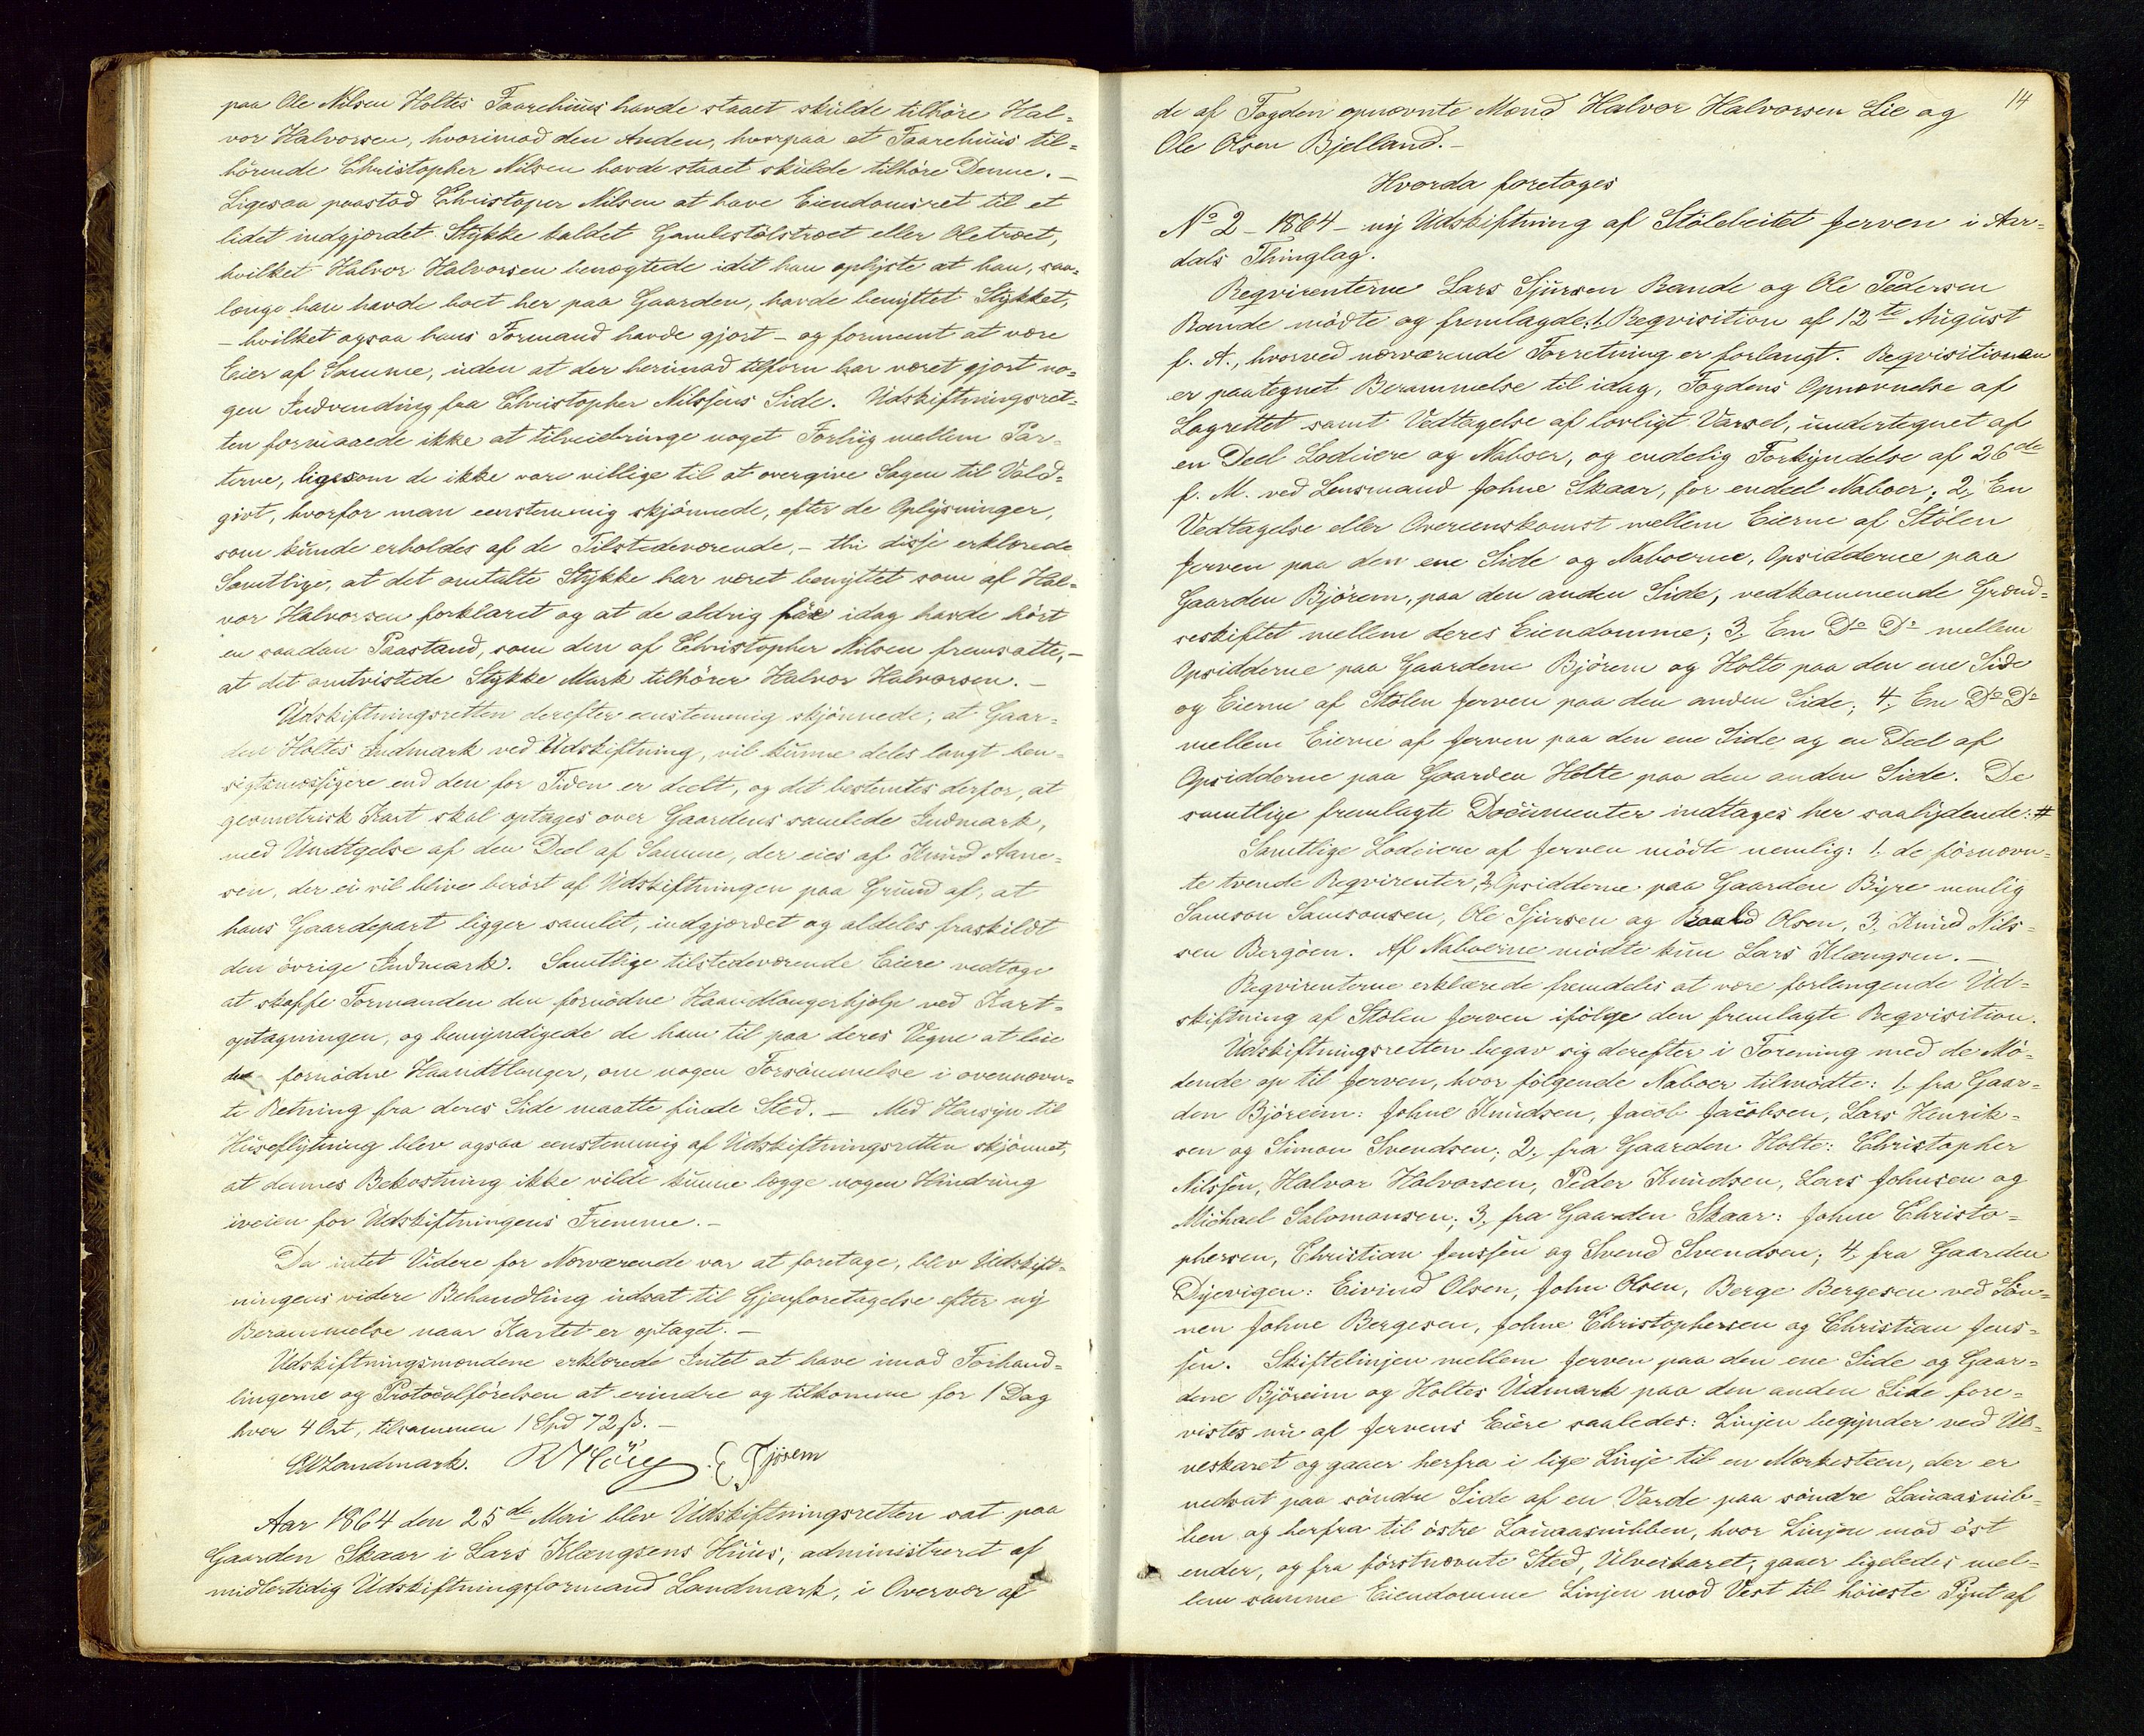 paa Ole Nilsen Holtes Faarehuus havde staaet skulde tilhöre Hal=
vor Halvorsen, hvorimod den Anden, hvorpaa et Faarehuus til=
hörende Christopher Nilsen havde staaet skulde tilhöre Denne. –
Ligesaa paastod Christoper Nilsen at have Eiendomsret til et
lidet indgjærdet Stykke kaldet Gamlestölstræet eller Oletræet,
hvilket Halvor Halvorsen benægtede idet han oplyste at han, saa=
længe han havde boet her paa Gaarden, havde benyttet Stykket,
– hvilket ogsaa hans Formand havde gjort – og formeent at være
Eier af Samme, uden at der herimod tilforn har været gjort no=
gen Indvending fra Christopher Nilssens Side. Udskiftningsret=
ten formaaede ikke at tilveiebringe noget Forliig mellem Par=
terne, ligesom de ikke vare villige til at overgive Sagen til Vold=
givt, hvorfor man eenstemmig skjönnede, efter de Oplysninger,
som kunde erholdes af de Tilstedeværende, – thi disse erklærede
Samtlige, at det omtalte Stykke har været benyttet som af Hal=
vor Halvorsen forklaret og at de aldrig för idag havde hört
en saadan Paastand, som den af Christopher Nilsen fremsatte, –
at det omtvistede Stykke Mark tilhörer Halvor Halvorsen. –
Udskiftningsretten derefter eenstemmig skjönnede, at Gaar=
den Holtes Indmark ved Udskiftning, vil kunne deles langt hen=
sigtsmæssigere end den for Tiden er deelt, og det bestemtes derfor, at
geometrisk Kart skal optages over Gaardens samlede Indmark,
med Undtgelse af den Deel af Samme, der eies af Knud Aane=
sen, der ei vil blive berört af Udskiftningen paa Grund af, at
hans Gaardepart ligger samlet, indgjærdet og aldeles fraskildt
den övrige Indmark. Samtlige tilstedeværende Eiere vedtoge
at skaffe Formanden den fornödne Haandlangerhjælp ved Kart=
optagningen, og bemyndigede de ham til paa deres Vegne at leie
den fornödne Haandtlanger, om nogen Forsömmelse i ovennævn=
te Retning fra deres Side maatte finde Sted. – Med Hensyn til
Huusflytning blev ogsaa eenstemmig af Udskiftningsretten skjönnet,
at dennes Bekostning ikke vilde kunne lægge nogen Hindring
iveien for Udskiftningens Fremme. –
Da intet Videre for Nærværende var at foretage, blev Udskift=
ningens videre Behandling udsat til Gjenforetagelse efter ny
Berammelse naar Kartet er optaget. –
Udskiftningsmændene erklærede Intet at have imod Forhand=
lingerne og Protocolförelsen at erindre og tilkomme for 1 Dag
hver 4 Ort, tilsammen 1 Spd 72 ß. –
Landmark.
Aar 1864 den 25de Mai blev Udskiftningsretten sat paa
Gaarden Skaar i Lars Klængsens Huus, administreret af
midlertidig Udskiftningsformand Landmark, i Overvær af
14
de af Fogden opnævnte Mænd Halvor Halvorsen Lie og
Ole Olsen Bjelland. –
Hvorda foretages
No 2 – 1864 – ny Udskiftning af Stölebeitet Jerven i Aar=
dals Thinglag.
Reqvirenterne Lars Sjursen Rande og Ole Pedersen
Rande mödte og fremlagde: 1, Reqvisition af 12te August
f. A., hvorved nærværende Forretning er forlangt. Reqvisitionen
er paategnet Berammelse til idag, Fogdens Opnævnelse af
Lagrettet samt Vedtagelse af lovligt Varsel, undertegnet af
en Deel Lodeiere og Naboer, og endelig Forkyndelse af 26de
f. M. ved Lensmand Johne Skaar, for endeel Naboer; 2, En
Vedtagelse eller Overeenskomst mellem Eierne af Stölen
Jerven paa den ene Side og Naboerne, Opsidderne paa
Gaarden Björem, paa den anden Side, vedkommende Grænd=
seskiftet mellem deres Eiendomme; 3, En Do Do mellem
Opsidderne paa Gaardene Björem og Holte paa den ene Side
og Eierne af Stölen Jerven paa den anden Side; 4, En Do Do
mellem Eierne af Jerven paa den ene Side og en Deel af
Opsidderne paa Gaarden Holte paa den anden Side. De
samtlige fremlagte Documenter indtages her saalydende: #
Samtlige Lodeiere af Jerven mödte nemlig: 1, de fornævn=
te tvende Reqvirenter, 2, Opsidderne paa Gaarden Byre nemlig
Samson Samsonsen, Ole Sjursen og Roald Olsen, 3, Knud Nils=
sen Bergöen. Af Naboerne mödte kun Lars Klængsen. –
Reqvirenterne erklærede fremdeles at være forlangende Ud=
skiftning af Stölen Jerven ifölge den fremlagte Reqvisition.
Udskiftningsretten begav sig derefter i Forening med de Mö=
dende op til Jerven, hvor fölgende Naboer tilmödte: 1, fra Gaar=
den Björeim: Johne Knudsen, Jacob Jacobsen, Lars Henrik=
sen og Simon Svendsen; 2, fra Gaarden Holte: Christopher
Nilssen, Halvor Halvorsen, Peder Knudsen, Lars Johnsen og
Michael Salomonsen; 3, fra Gaarden Skaar: Johne Christo=
phersen, Christian Jenssen og Svend Svendsen; 4, fra Gaarden
Dyevigen: Eivind Olsen, John Olsen, Berge Bergesen ved Sön=
nen Johne Bergesen, Johne Christophersen og Christian Jens=
sen. Skiftelinjen mellem Jerven paa den ene Side og Gaar=
dene Björeim og Holtes Udmark paa den anden Side fore=
vistes nu af Jervens Eiere saaledes: Linjen begynder ved Ul=
veskaret og gaaer herfra i lige Linje til en Merkesteen, der er
nedsat paa söndre Side af en Varde paa söndre Lauaasnib=
ben og herfra til östre Lauaasnibben, hvor Linjen mod öst
ender, og fra förstnævnte Sted, Ulveskaret, gaaer ligeledes mel=
lem samme Eiendomme Linjen mod Vest til höieste Pynt af